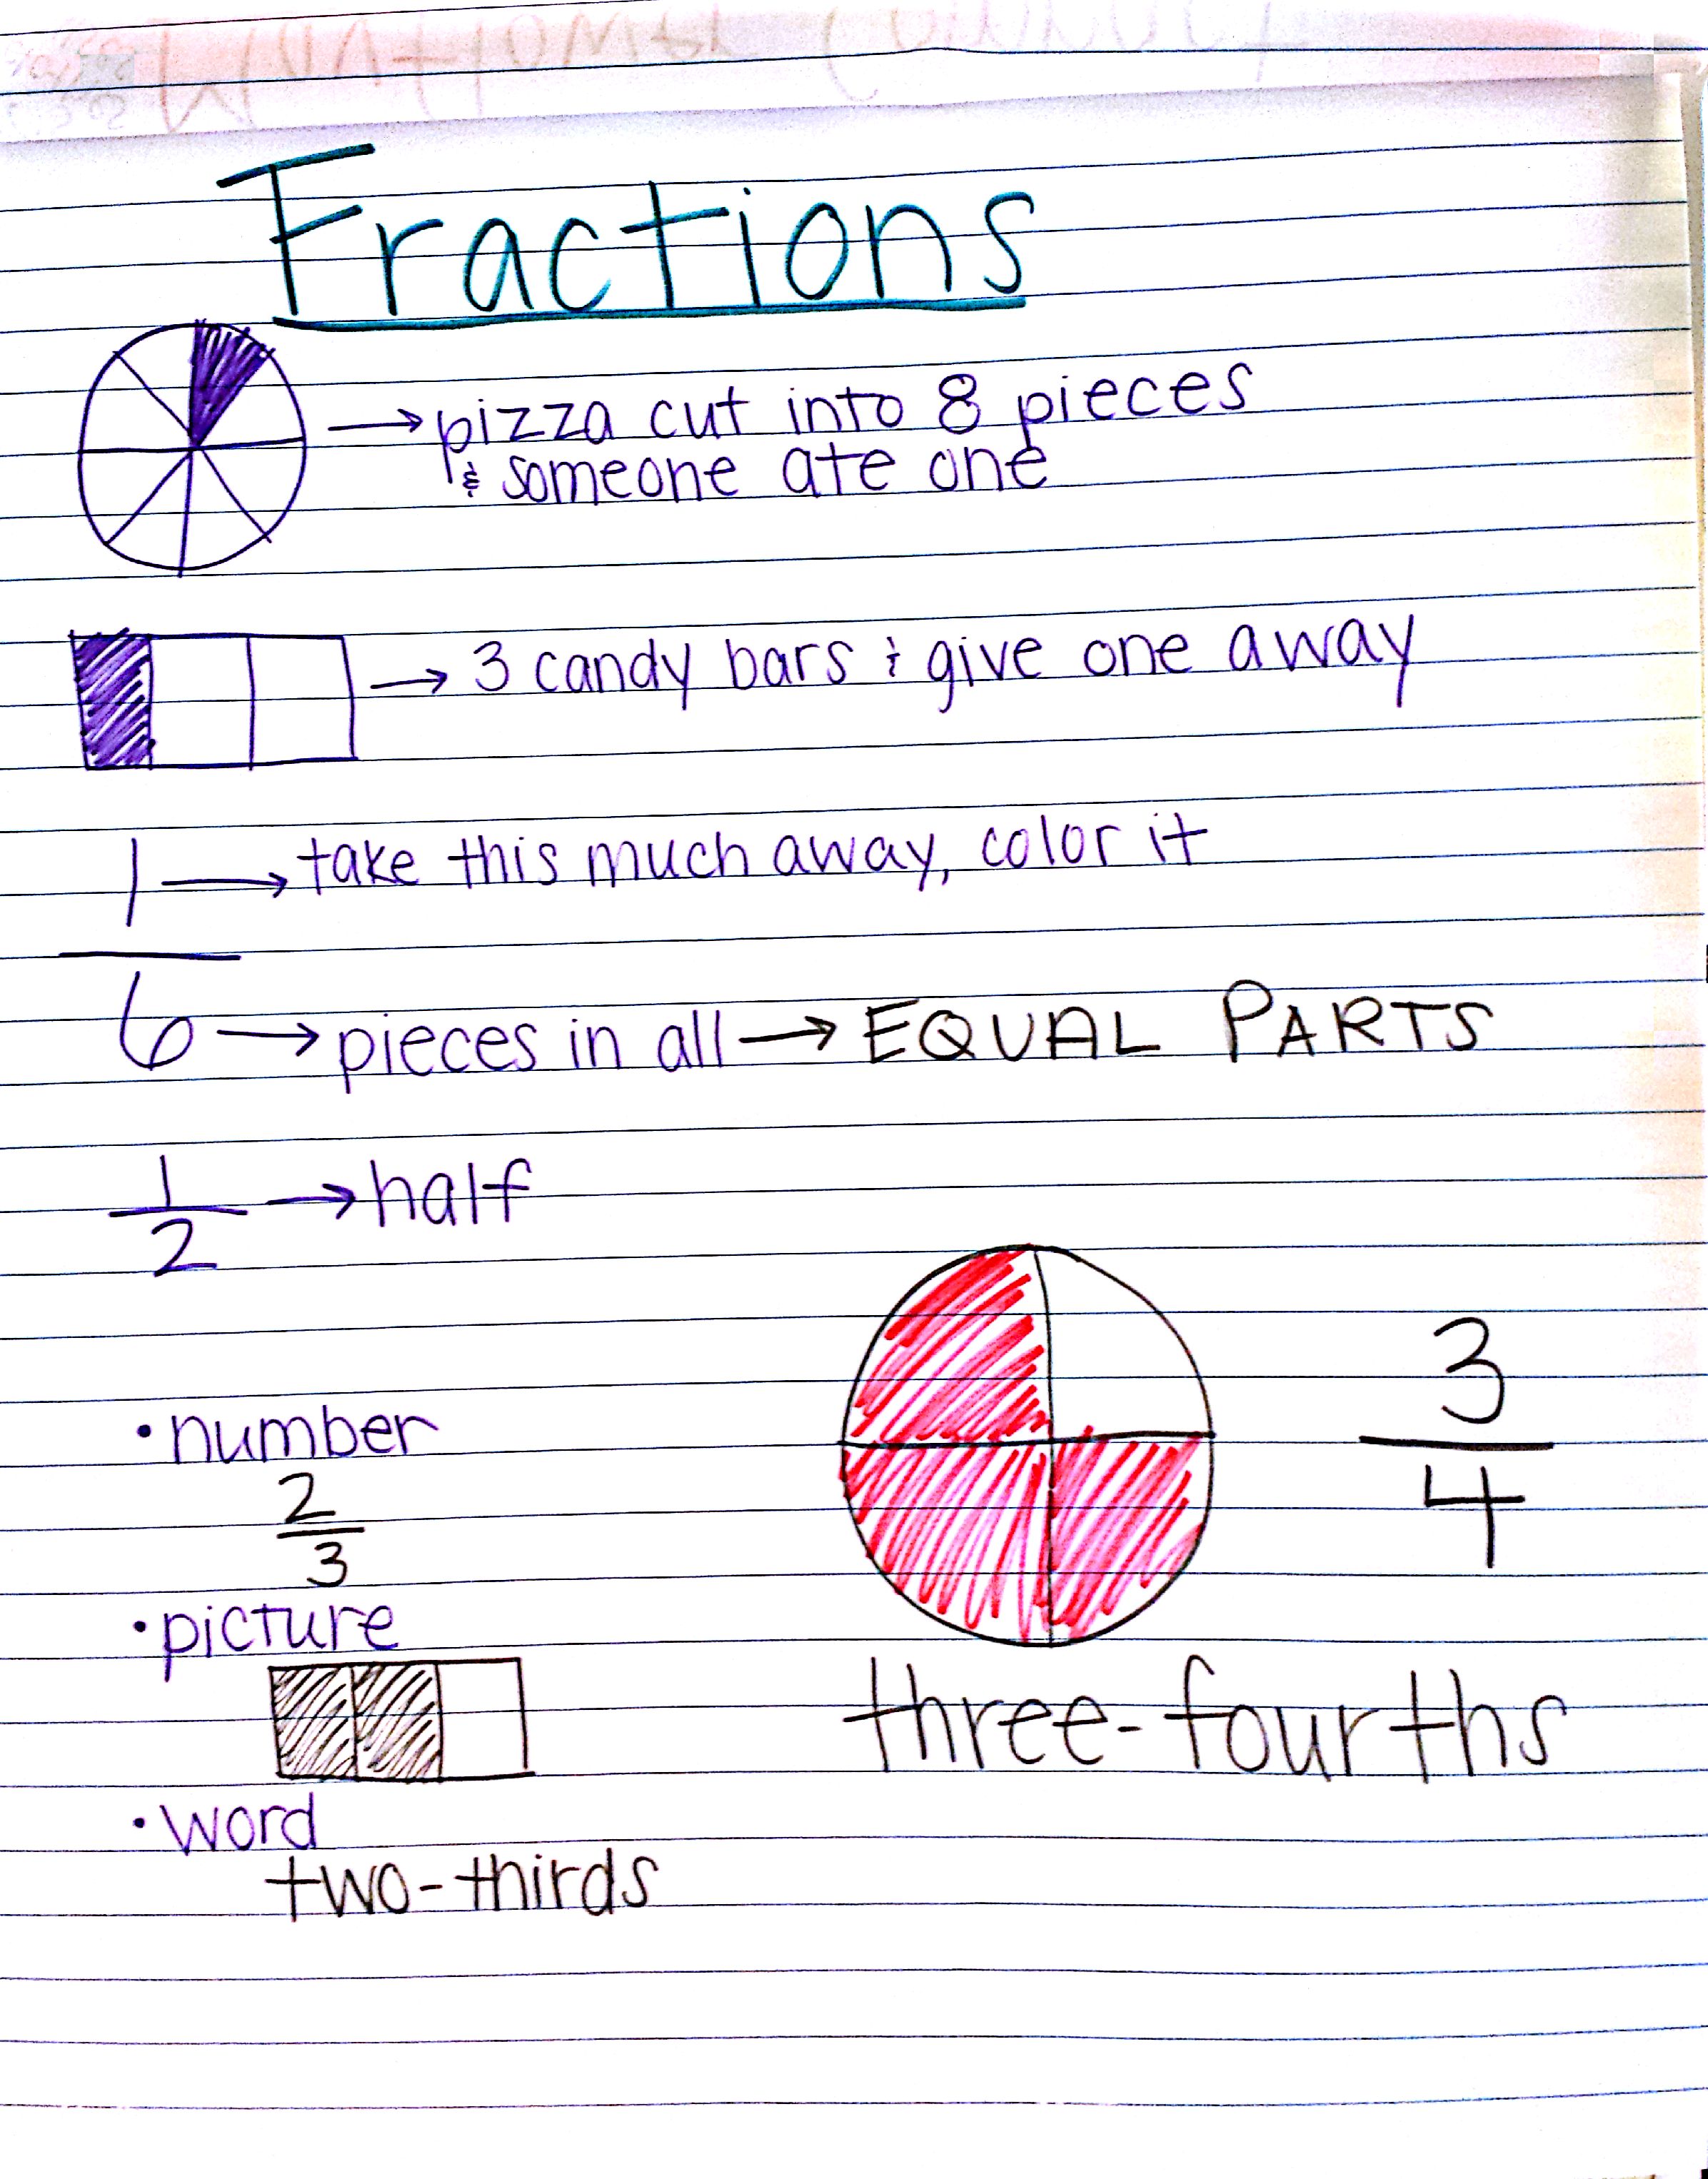 Fractions
→ pizza cut into 8 pieces
& someone ate one
→ 3 candy bars & give one away
1 → take this much away, color it
6 → pieces in all → EQUAL PARTS
1
2
→ half
• number
2
3
• picture
• word
two-thirds
3
4
three-fourths